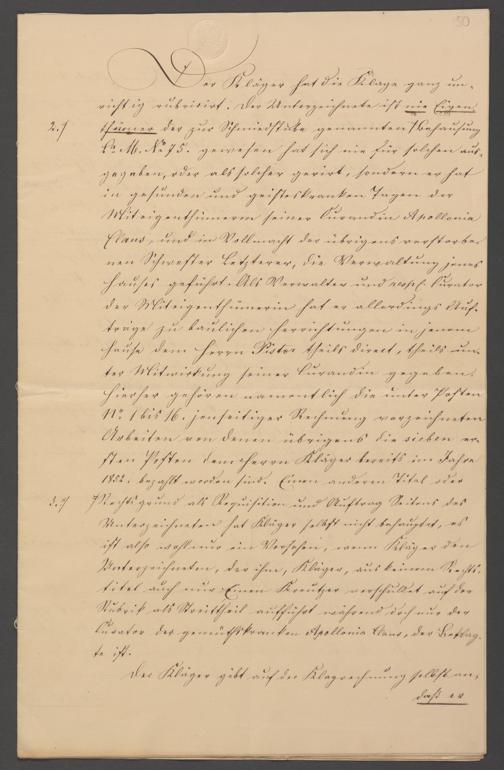 50
Der Kläger hat die Klage ganz un-
richtig rubricirt. Der Unterzeichnete ist nie Eigen
2.) thümer der zur Schmiedstube genannten Behausung
La. M. No 75. gewesen hat sich nie für solchen aus-
gegeben, oder als solcher gerirt, sondern er hat
in gesunden und geisteskranken Tagen der
Miteigenthümerin seiner Curandin Apollonia
Claus, und in Vollmacht der übrigens verstorbe
nen Schwester Letzterer, die Verwaltung jenes
Hauses geführt. Als Verwalter und resp. Curator
der Miteigenthümerin hat er allerdings Auf-
träge zu baulichen Herrichtungen in jenem
Hause dem Herrn theils direct, theils un-
ter Mitwirkung seiner Curandin gegeben.
Hierher gehören namentlich die unter Posten
No. 1 bis 16. jenseitiger Rechnung verzeichneten
Arbeiten von denen übrigens die sieben er-
sten Posten dem Herrn Kläger bereits im Jahre
1852. bezahlt worden sind. Einen anderen Titel oder
3.) Rechtsgrund als Requisition und Auftrag Seitens des
Unterzeichneten hat Kläger selbst nicht behauptet, es
ist also wohl nur ein Versehen, wenn Kläger den
Unterzeichneten, der ihm, Kläger, aus keinem Rechts-
titel auch nur Einen Kreutzer verschuldet auf der
Rubrik als Streittheil aufführt während doch nur der
Curator der gemüthskranken Apollonia Claus, der Beklag-
te ist.
Der Kläger gibt auf der Klagrechnung selbst an,
daß er